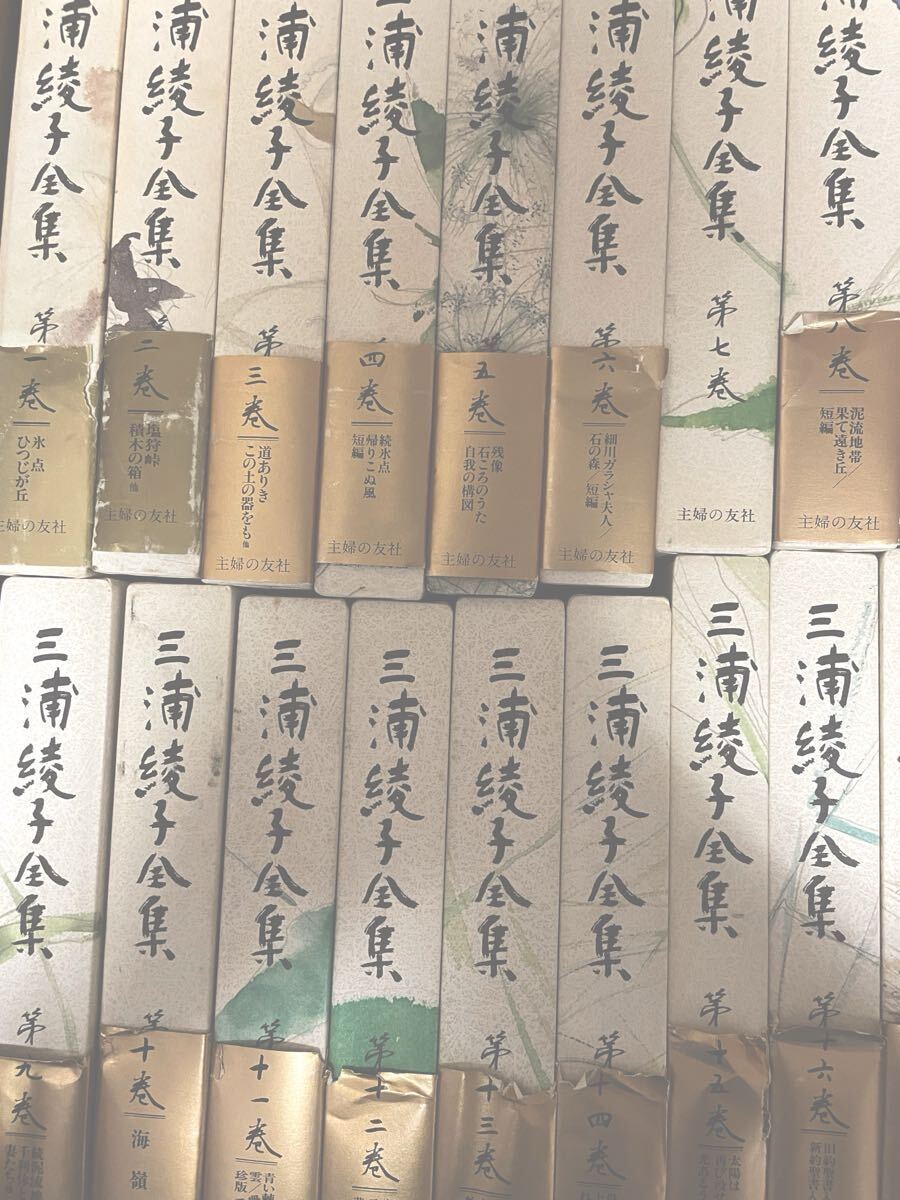 浦綾子全集 第一巻
氷点
ひつじが丘
主婦の友社
浦綾子全集 二巻
塩狩峠
積木の箱 他
主婦の友社
浦綾子全集 第三巻
道ありき
この土の器をも 他
主婦の友社
三浦綾子全集 四巻
続氷点
帰りこぬ風
短編
主婦の友社
浦綾子全集 五巻
残像
石ころのうた
自我の構図
主婦の友社
浦綾子全集 第六巻
細川ガラシャ夫人/
石の森/短編
主婦の友社
浦綾子全集 第七巻
主婦の友社
浦綾子全集 第八巻
泥流地帯
果て遠き丘/
短編
主婦の友社
三浦綾子全集 第九巻
続泥流地
千利休と
妻たち
三浦綾子全集 第十巻
海嶺
三浦綾子全集 第十一巻
青い
雲/
珍版
三浦綾子全集 第十二巻
三浦綾子全集 第十三巻
三浦綾子全集 第十四巻
三浦綾子全集 第十五巻
太陽は
再び
三浦綾子全集 第十六巻
旧約聖書
新約聖書